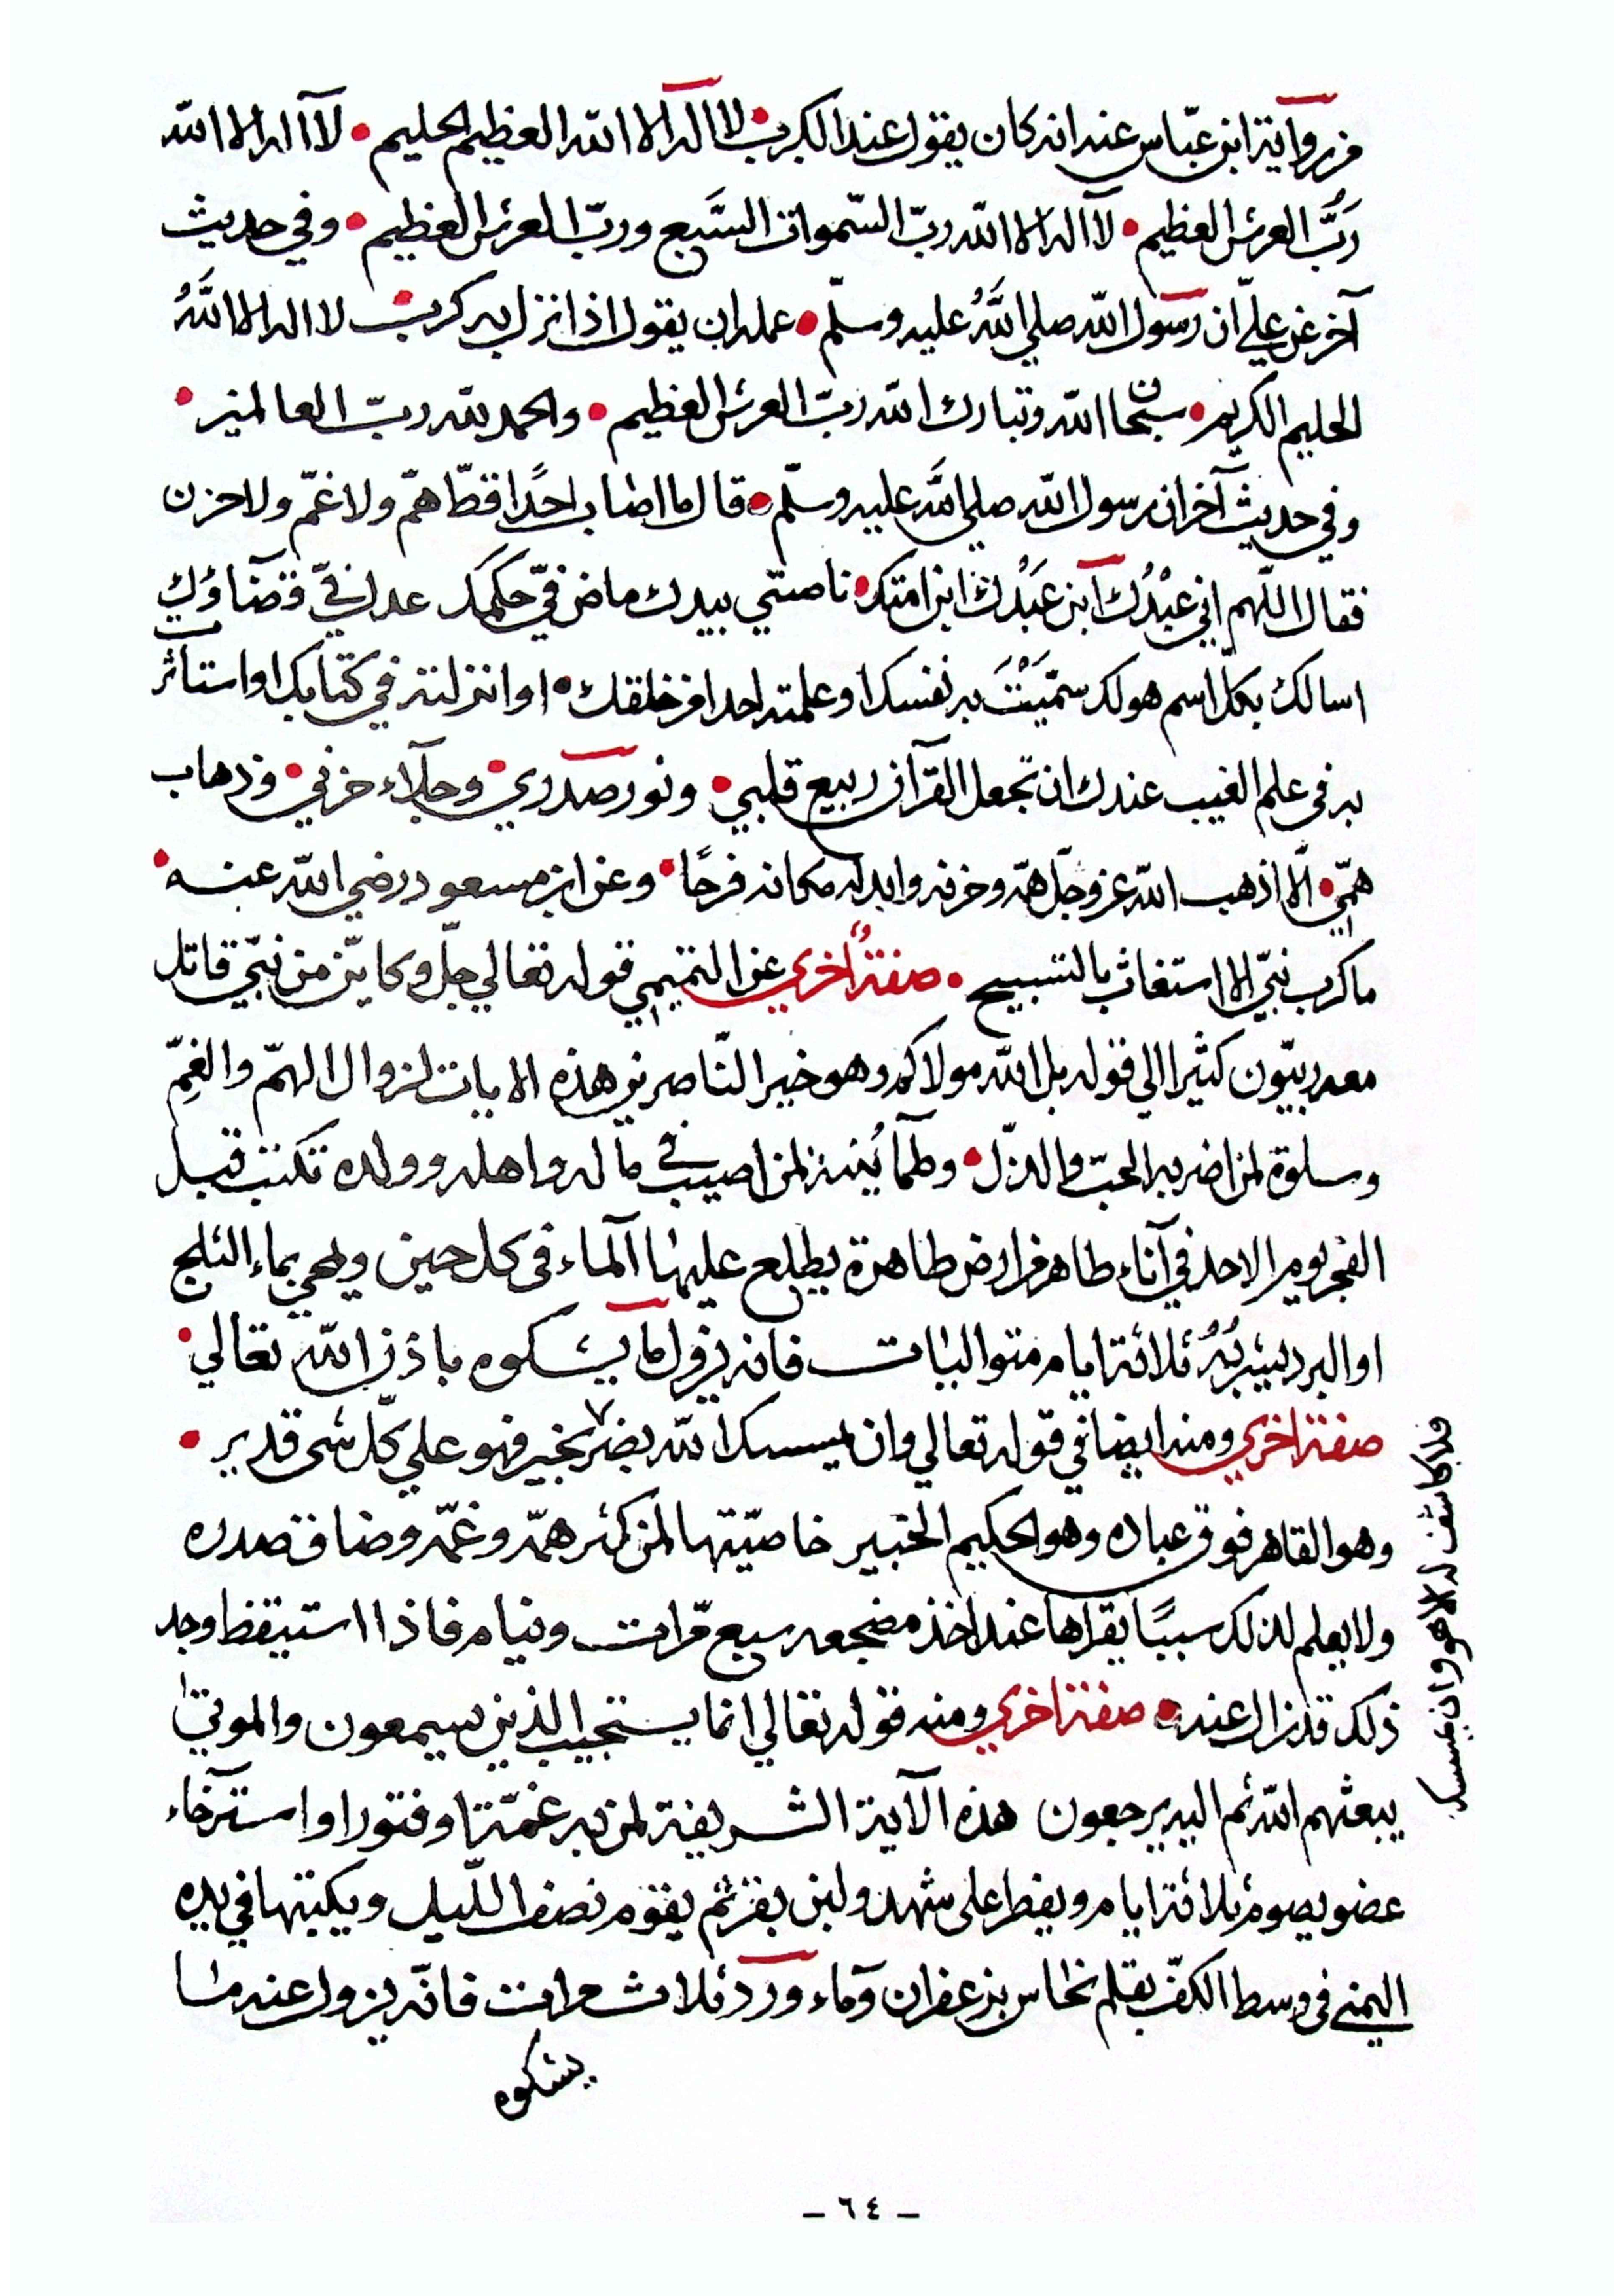 من رواية ابن عبّاس عنه انه كان يقول عند الكرب لا اله الا الله العظيم الحليم • لا اله الا الله
ربُّ العرش العظيم • لا اله الا الله ربّ السّموات السَّبع وربّ العرش العظيم • وفي حديث
آخر عن عليّ ان رسول الله صلي اللَّهُ عليه وسلّم • علمه ان يقول اذا نزل به كرب لا اله الا اللَّهُ
الحليم الكريم • سبحان الله وتبارك الله ربّ العرش العظيم • والحمد لله ربّ العالمين •
وفي حديث آخر ان رسول الله صلي الله عليه وسلّم • قال ما اصاب احدًا قطّ همّ ولا غمّ ولا حزن
فقال اللّهم اني عبْدُك ابن عَبْدُك ابن امتك • ناصيتي بيدك ماض فيّ حكمك عدل فيّ قضاؤك
اسالك بكلّ اسم هو لك سمّيْتَ به نفسك او علمته احدا من خلقك • او انزلته في كتابك او استاثرت
به في علم الغيب عندك ان تجعل القرآن ربيع قلبي • ونور صدري • وجلاء حزني • وذهاب
همّي • الّا اذهب الله عز وجلّ همّه وحزنه وابدله مكانه فرحًا • وعن ابن مسعود رضي الله عنه •
ما كرب نبيّ الا استغاث بالتسبيح • صفة أُخري عن التميمي قوله تعالي جلّ وكايّن من نبيّ قاتل
معه ربيّون كثيرا الي قوله بل الله مولاكم وهو خير النّاصرين هذه الايات لزوال الهمّ والغمّ
وسلوة لمن اضر به الحب والذلّ • وطمأنينة لمن اصيب في ماله واهله وولده تكتب قبل
الفجر يوم الاحد في آناء طاهر من ارض طاهرة يطلع عليها الماء في كل حين ويمحي بماء الثلج
او البرد يشربُهُ ثلاثة ايام متواليات فانه يزول ما يشكوه باذن الله تعالي •
صفة اخري ومنه ايضا في قوله تعالي وان يمسسك الله بضر بخير فهو علي كلّ شي قدير •
فلا كاشف له الا هو وان يمسسك
وهو القاهر فوق عباده وهو الحكيم الخبير خاصيّتها لمن كثر همّه وغمّه وضاق صدره
ولا يعلم لذلك سببًا يقراها عند اخذ مضجعه سبع مّرات وينام فاذا استيقظ وجد
ذلك قد زال عنه • صفة اخري ومنه قوله تعالي انما يستجيب الذين يسمعون والموتي
يبعثهم الله ثم اليه يرجعون هذه الآية الشريفة لمن به غمّة او فتورا واسترخاء
عضو يصوم ثلاثة ايام ويفطر على شهد ولبن بقر ثم يقوم نصف اللّيل ويكتبها في يده
اليمني في وسط الكفّ بقلم نحاس بزعفران وماء ورد ثلاث مرات فانّه يزول عنه ما
يشكوه
- ٦٤ -